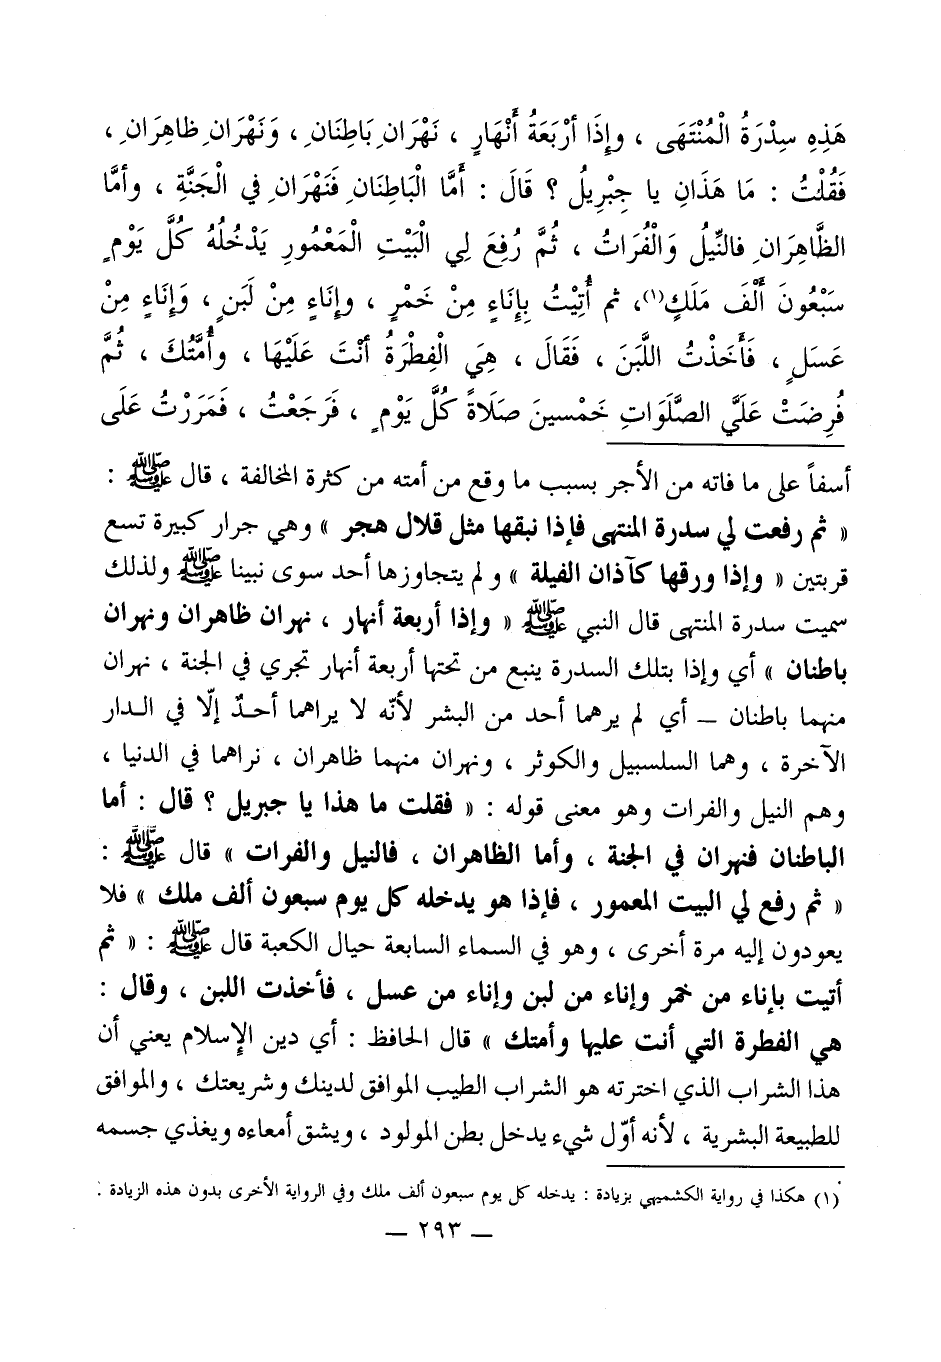 هَذِهِ سِدْرَةُ الْمُنْتَهَى ، وإِذَا أَرْبَعَةُ أَنْهَارٍ ، نَهْرَانِ بَاطِنَانِ ، وَنَهْرَانِ ظاهِرَانِ ،
فَقُلْتُ : مَا هَذَانِ يا جِبْرِيلُ ؟ قَالَ : أَمَّا الْبَاطِنَانِ فَنَهْرَانِ في الْجَنَّةِ ، وأمَّا
الظَّاهِرَانِ فالنِّيلُ وَالْفُرَاتُ ، ثُمَّ رُفِعَ لِي الْبَيْتِ الْمَعْمُورِ يَدْخُلُهُ كُلَّ يَوْمٍ
سَبْعُونَ أَلْفَ مَلَكٍ(١)، ثم أُتِيْتُ بِإِنَاءٍ مِنْ خَمْرٍ ، وإِنَاءٍ مِنْ لَبَنٍ ، وَإِنَاءٍ مِنْ
عَسَلٍ ، فَأَخَذْتُ اللَّبَنَ ، فَقَالَ ، هِيَ الْفِطْرَةُ أَنْتَ عَلَيْهَا ، وأُمَّتُكَ ، ثُمَّ
فُرِضَتْ عَلَيَّ الصَّلَوَاتِ خَمْسينَ صَلَاةً كُلَّ يَوْمٍ ، فَرَجَعْتُ ، فَمَرَرْتُ عَلَى
أسفاً على ما فاته من الأجر بسبب ما وقع من أمته من كثرة المخالفة ، قال ﷺ :
« ثم رفعت لي سدرة المنتهى فإذا نبقها مثل قلال هجر » وهي جرار كبيرة تسع
قربتين « وإذا ورقها كآذان الفيلة » ولم يتجاوزها أحد سوى نبينا ﷺ ولذلك
سميت سدرة المنتهى قال النبي ﷺ « وإذا أربعة أنهار ، نهران ظاهران ونهران
باطنان » أي وإذا بتلك السدرة ينبع من تحتها أربعة أنهار تجري في الجنة ، نهران
منهما باطنان ــ أي لم يرهما أحد من البشر لأنّه لا يراهما أحدٌ إلّا في الدار
الآخرة ، وهما السلسبيل والكوثر ، ونهران منهما ظاهران ، نراهما في الدنيا ،
وهم النيل والفرات وهو معنى قوله : « فقلت ما هذا يا جبريل ؟ قال : أما
الباطنان فنهران في الجنة ، وأما الظاهران ، فالنيل والفرات » قال ﷺ :
« ثم رفع لي البيت المعمور ، فإذا هو يدخله كل يوم سبعون ألف ملك » فلا
يعودون إليه مرة أخرى ، وهو في السماء السابعة حيال الكعبة قال ﷺ : « ثم
أتيت بإناء من خمر وإناء من لبن وإناء من عسل ، فأخذت اللبن ، وقال :
هي الفطرة التي أنت عليها وأمتك » قال الحافظ : أي دين الإسلام يعني أن
هذا الشراب الذي اخترته هو الشراب الطيب الموافق لدينك وشريعتك ، والموافق
للطبيعة البشرية ، لأنه أوّل شيء يدخل بطن المولود ، ويشق أمعاءه ويغذي جسمه
(١) هكذا في رواية الكشميهي بزيادة : يدخله كل يوم سبعون ألف ملك وفي الرواية الأخرى بدون هذه الزيادة :
ــ ٢٩٣ ــ